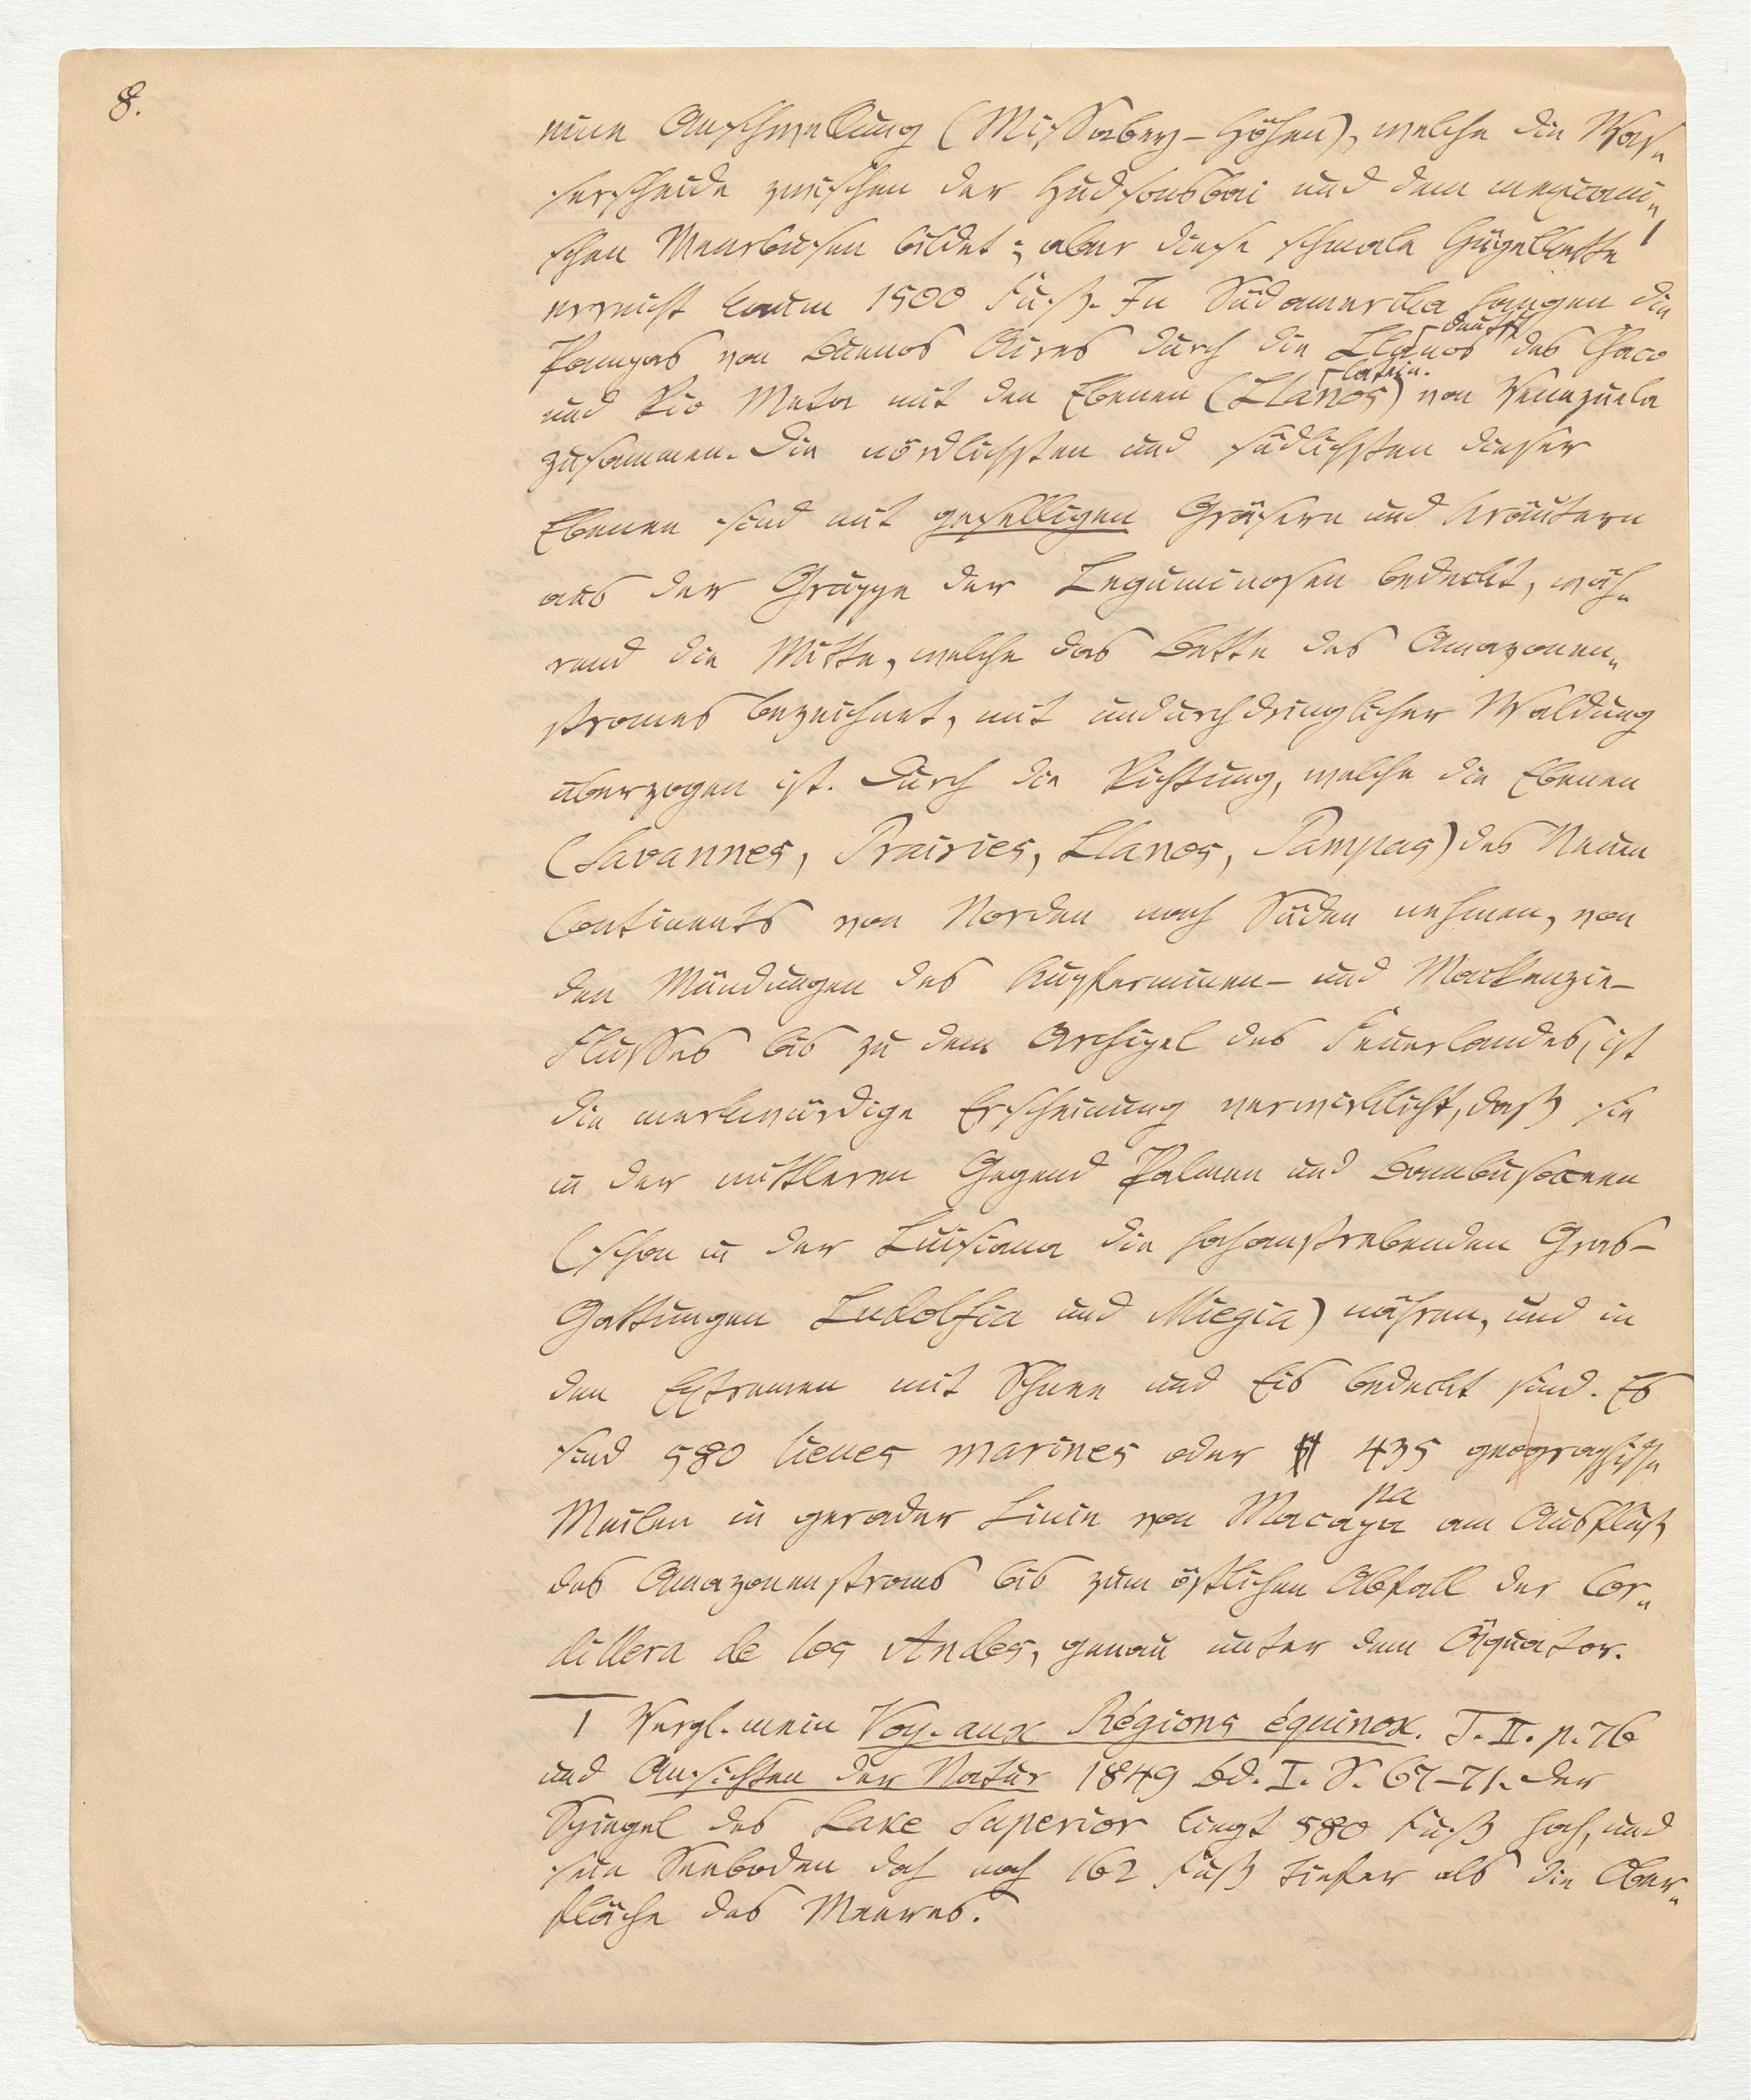 8.
eine Anschwellung (Missabey-Höhen), welche die Was„
serscheide zwischen der Hudsonsbai und dem mexicani„
schen Meerbusen bildet; aber diese schmale Hügelkette 1
erreicht kaum 1500 Fuß. In Südamerika hangen die
deutsch
Pampas von Buenos Aires durch die Llanos des Chaco
latein.
und Rio Meta mit den Ebenen (Llanos) von Venezuela
zusammen. Die nördlichsten und südlichsten dieser
Ebenen sind mit geselligen Gräsern und Kräutern
aus der Gruppe der Leguminosen bedeckt, wäh„
rend die Mitte, welche das Bette des Amazonen„
stromes bezeichnet, mit undurchdringlicher Waldung
überzogen ist. Durch die Richtung, welche die Ebenen
(Savannes, Prairies, Llanos, Pampas) des Neuen
Continents von Norden nach Süden nehmen, von
den Mündungen des Kupferminen- und Mackenzie-
Flusses bis zu dem Archipel des Feuerlandes, ist
die merkwürdige Erscheinung verwirklicht, daß sie
in der mittleren Gegend Palmen und Bambusaceen
(schon in der Luisiana die hochanstrebenden Gras-
Gattungen Ludolfia und Miegia) nähren, und in
den Extremen mit Schnee und Eis bedeckt sind. Es
sind 580 lieues marines oder 435 geographische
pa
Meilen in gerader Linie von Macapa am Ausfluß
des Amazonenstroms bis zum östlichen Abfall der Cor„
dillera de los Andes, genau unter dem Äquator.
1 Vergl. mein Voy. aux Régions équinox. T. II. p. 76
und Ansichten der Natur 1849 Bd. I. S. 67-71. Der
Spiegel des Lake Superior liegt 580 Fuß hoch, und
sein Seeboden doch noch 162 Fuß tiefer als die Ober„
fläche des Meeres.